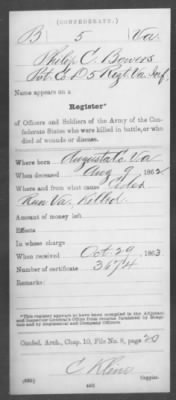 (CONFEDERATE.)
B 5 Va.
Philip C. Bowers
Pvt. Co. D 5 Regt. Va. Inf.
Name appears on a
Register*
of Officers and Soldiers of the Army of the Con-
federate States who were killed in battle, or who
died of wounds or disease.
Where born Augusta Co Va
When deceased Aug 9, 1862
Where and from what cause Cedar
Run Va. Killed
Amount of money left
Effects
In whose charge
When received Oct 29 1863
Number of certificate 3674
Remarks:
*This register appears to have been compiled in the Adjutant
and Inspector General's Office from returns furnished by Hospi-
tals and by Regimental and Company Officers.
Confed. Arch., Chap. 10, File No. 8, page 20
C. Klein
Copyist.